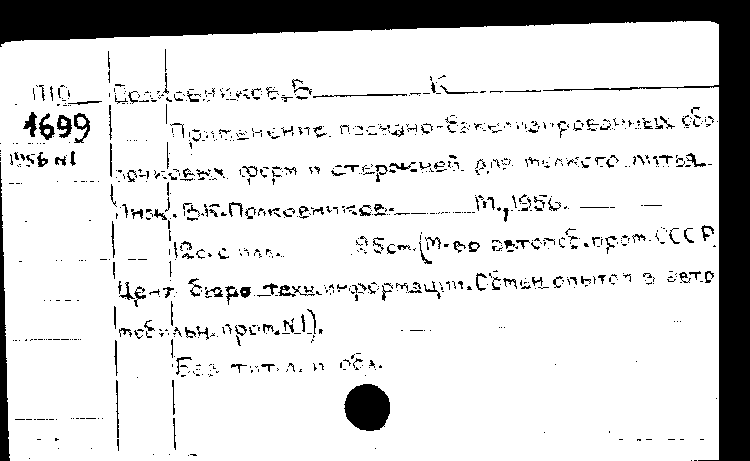 П10 Полковников, В К
1699 Применение песчано-бакелизированных обо
1956 N1 лочковых форм и стержней для мелкого литья.
Инж. В.К. Полковников. М., 1956.
12 с. с илл. 25 см. (М-во автомоб. пром. СССР
Цент. бюро техн. информации. Обмен опытом в авто
мобильн. пром. N1).
Без титл. и обл.